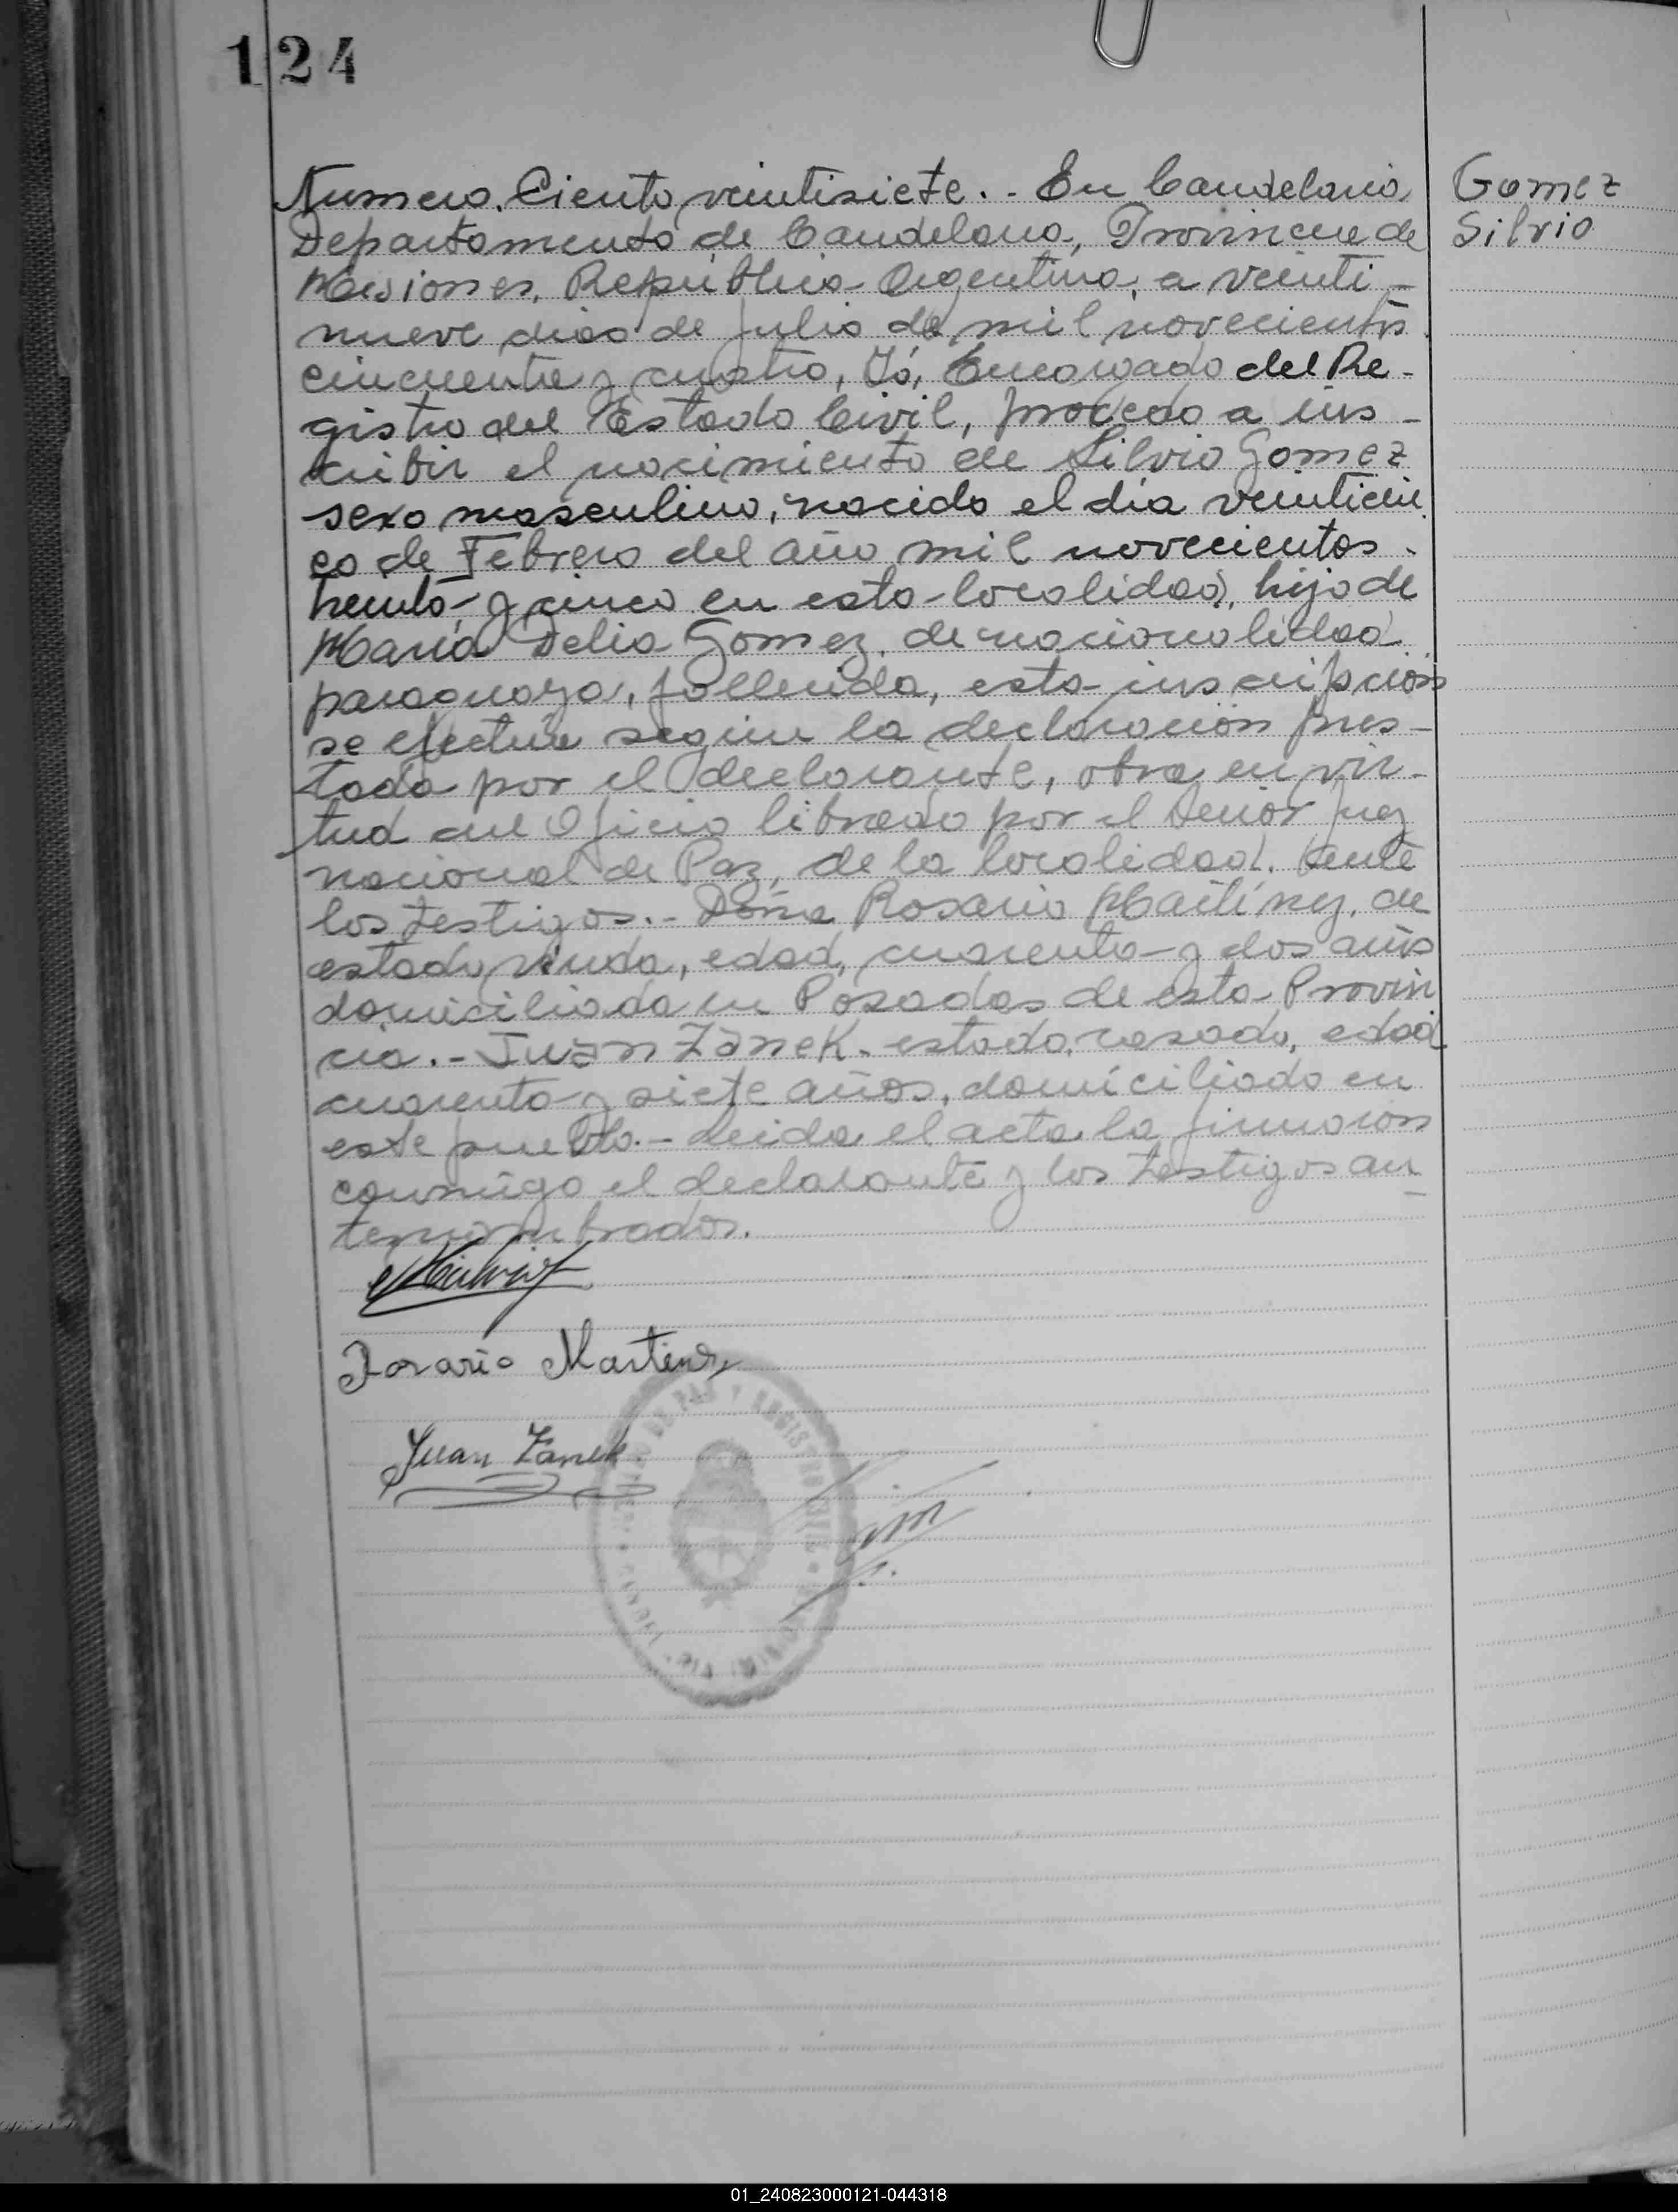 124
Gomez
Silvio
Numero. Ciento veintisiete.- En Candelaria
Departamento de Candelaria, Provincia de
Misiones, República Argentina, a veinti-
nueve dias de julio de mil novecientos
cincuenta y cuatro, Yó, Encargado del Re-
gistro del Estado Civil, procedo a ins-
cribir el nacimiento de Silvio Gomez
sexo masculino, nacido el día veinticin
co de Febrero del año mil novecientos
treinta y cinco en esta localidad, hijo de
María Delia Gomez, de nacionalidad
paraguaya, fallecida, esta inscripción
se efectúa según la declaración pres-
tada por el declarante, obra en vir-
tud del Oficio librado por el Señor Juez
nacional de Paz, de la localidad. Ante
los testigos.- Doña Rosario Martínez, de
estado viuda, edad, cuarenta y dos años
domiciliada en Posadas de esta Provin
cia.- Juan Zanek. estado casado, edad
cuarenta y siete años, domiciliado en
este pueblo.- Leida el acta la firmaron
conmigo el declarante y los testigos an
tenombrados.
Rosario Martinez
Juan Zanek
01_240823000121-044318